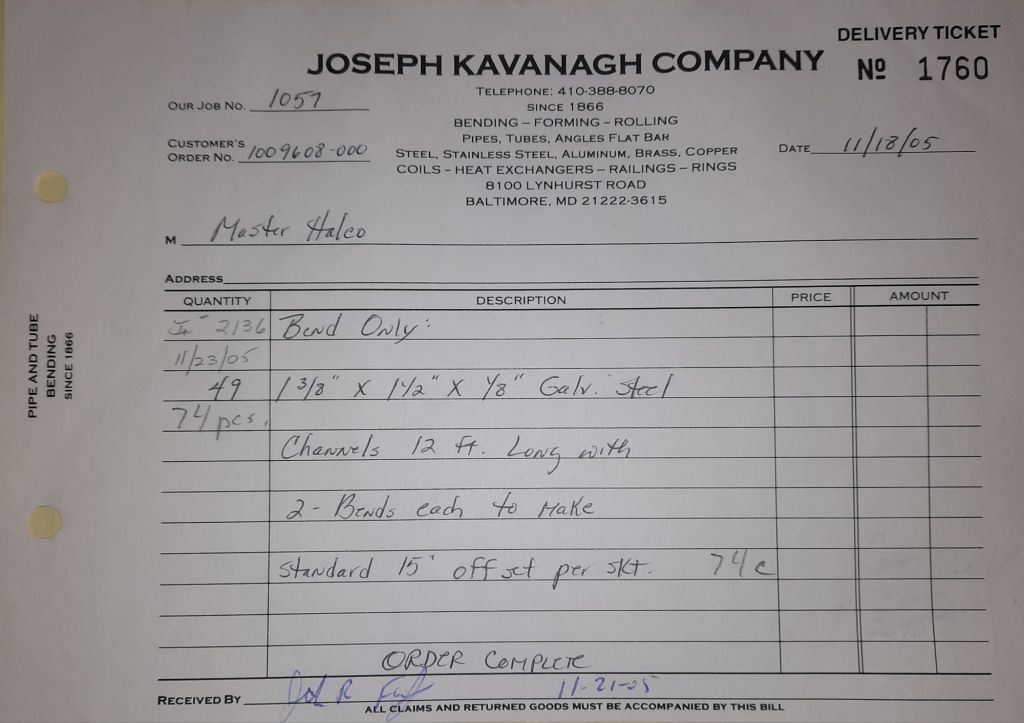 DELIVERY TICKET
JOSEPH KAVANAGH COMPANY
Nº 1760
TELEPHONE: 410-388-8070
SINCE 1866
BENDING – FORMING – ROLLING
PIPES, TUBES, ANGLES FLAT BAR
STEEL, STAINLESS STEEL, ALUMINUM, BRASS, COPPER
COILS – HEAT EXCHANGERS – RAILINGS – RINGS
8100 LYNHURST ROAD
BALTIMORE, MD 21222-3615
OUR JOB NO. 1057
CUSTOMER'S
ORDER NO. 1009608-000
DATE 11/18/05
M Master Halco
ADDRESS
QUANTITY DESCRIPTION PRICE AMOUNT
2136 Bend Only:
11/23/05
49 1 3/8" X 1 1/2" X 1/8" Galv. Steel
74 pcs.
Channels 12 ft. Long with
2 - Bends each to Make
Standard 15" offset per skt. 74c
ORDER COMPLETE
RECEIVED BY 11-21-05
ALL CLAIMS AND RETURNED GOODS MUST BE ACCOMPANIED BY THIS BILL
PIPE AND TUBE
BENDING
SINCE 1866